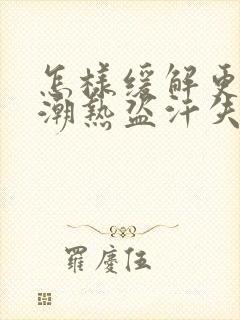 怎樣緩解更
潮熱盜汗失
羅慶伍